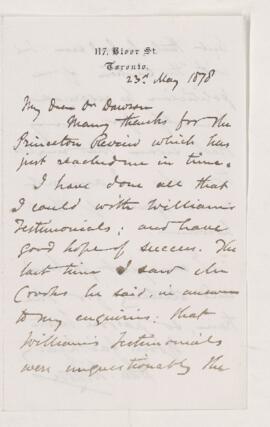 117, Bloor St.
Toronto.
23rd May 1878
My dear Dr Dawson
Many thanks for the
Princeton Review which has
just reached me in time.
I have done all that
I could with William's
Testimonials; and have
good hope of success. The
last time I saw Mr
Crooks he said, in answer
to my enquiries: that
William's Testimonials
were unquestionably the